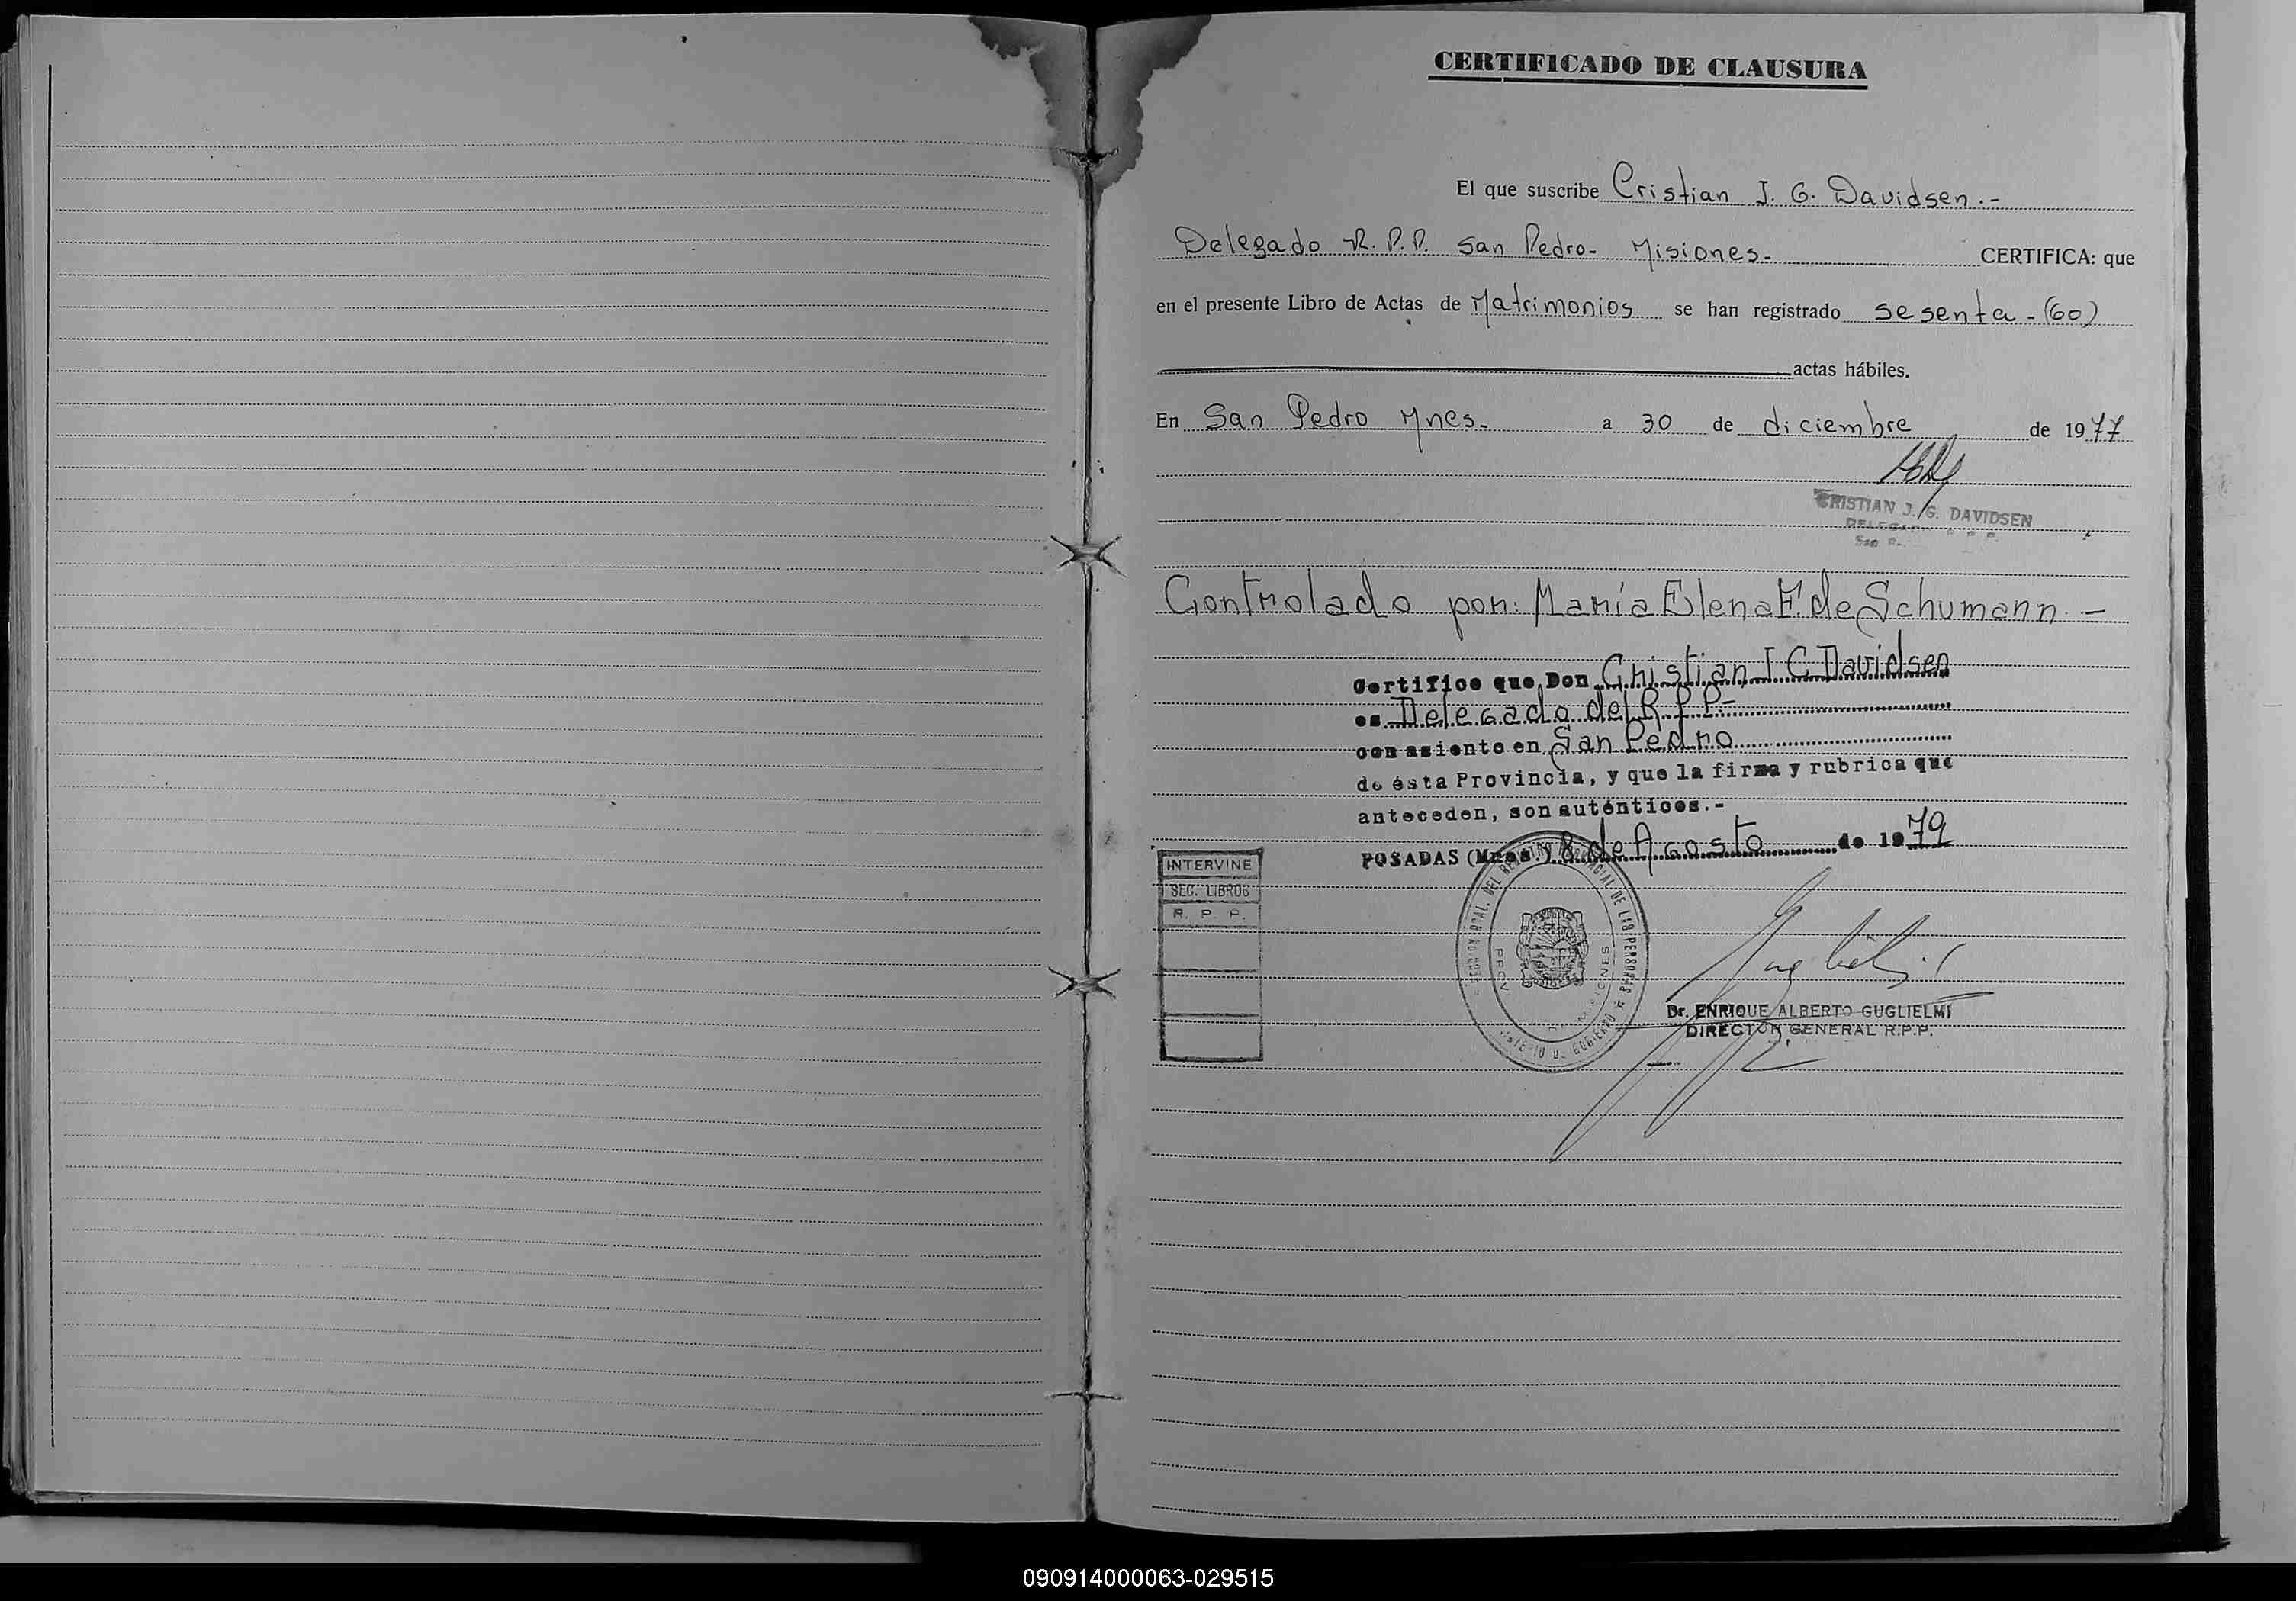 CERTIFICADO DE CLAUSURA
El que suscribe Cristian J. G. Davidsen.-
Delegado R. P. P. San Pedro- Misiones- CERTIFICA: que
en el presente Libro de Actas de Matrimonios se han registrado sesenta-(60)
actas hábiles.
En San Pedro Mnes- a 30 de diciembre de 1977
CRISTIAN J. G. DAVIDSEN
Controlado por: María Elena F. de Schumann -
Certifico que Don Christian J G Davidsen
es Delegado del R P P-
con asiento en San Pedro
de ésta Provincia, y que la firma y rubrica que
anteceden, son auténticos.-
POSADAS (Mnes.) 8 de Agosto de 1979
INTERVINE
SEC. LIBROS
R. P. P.
GRAL. DEL REGISTRO PROVINCIAL DE LAS PERSONAS
PROV MISIONES
MINISTERIO DE GOBIERNO
Dr. ENRIQUE ALBERTO GUGLIELMI
DIRECTOR GENERAL R.P.P.
090914000063-029515